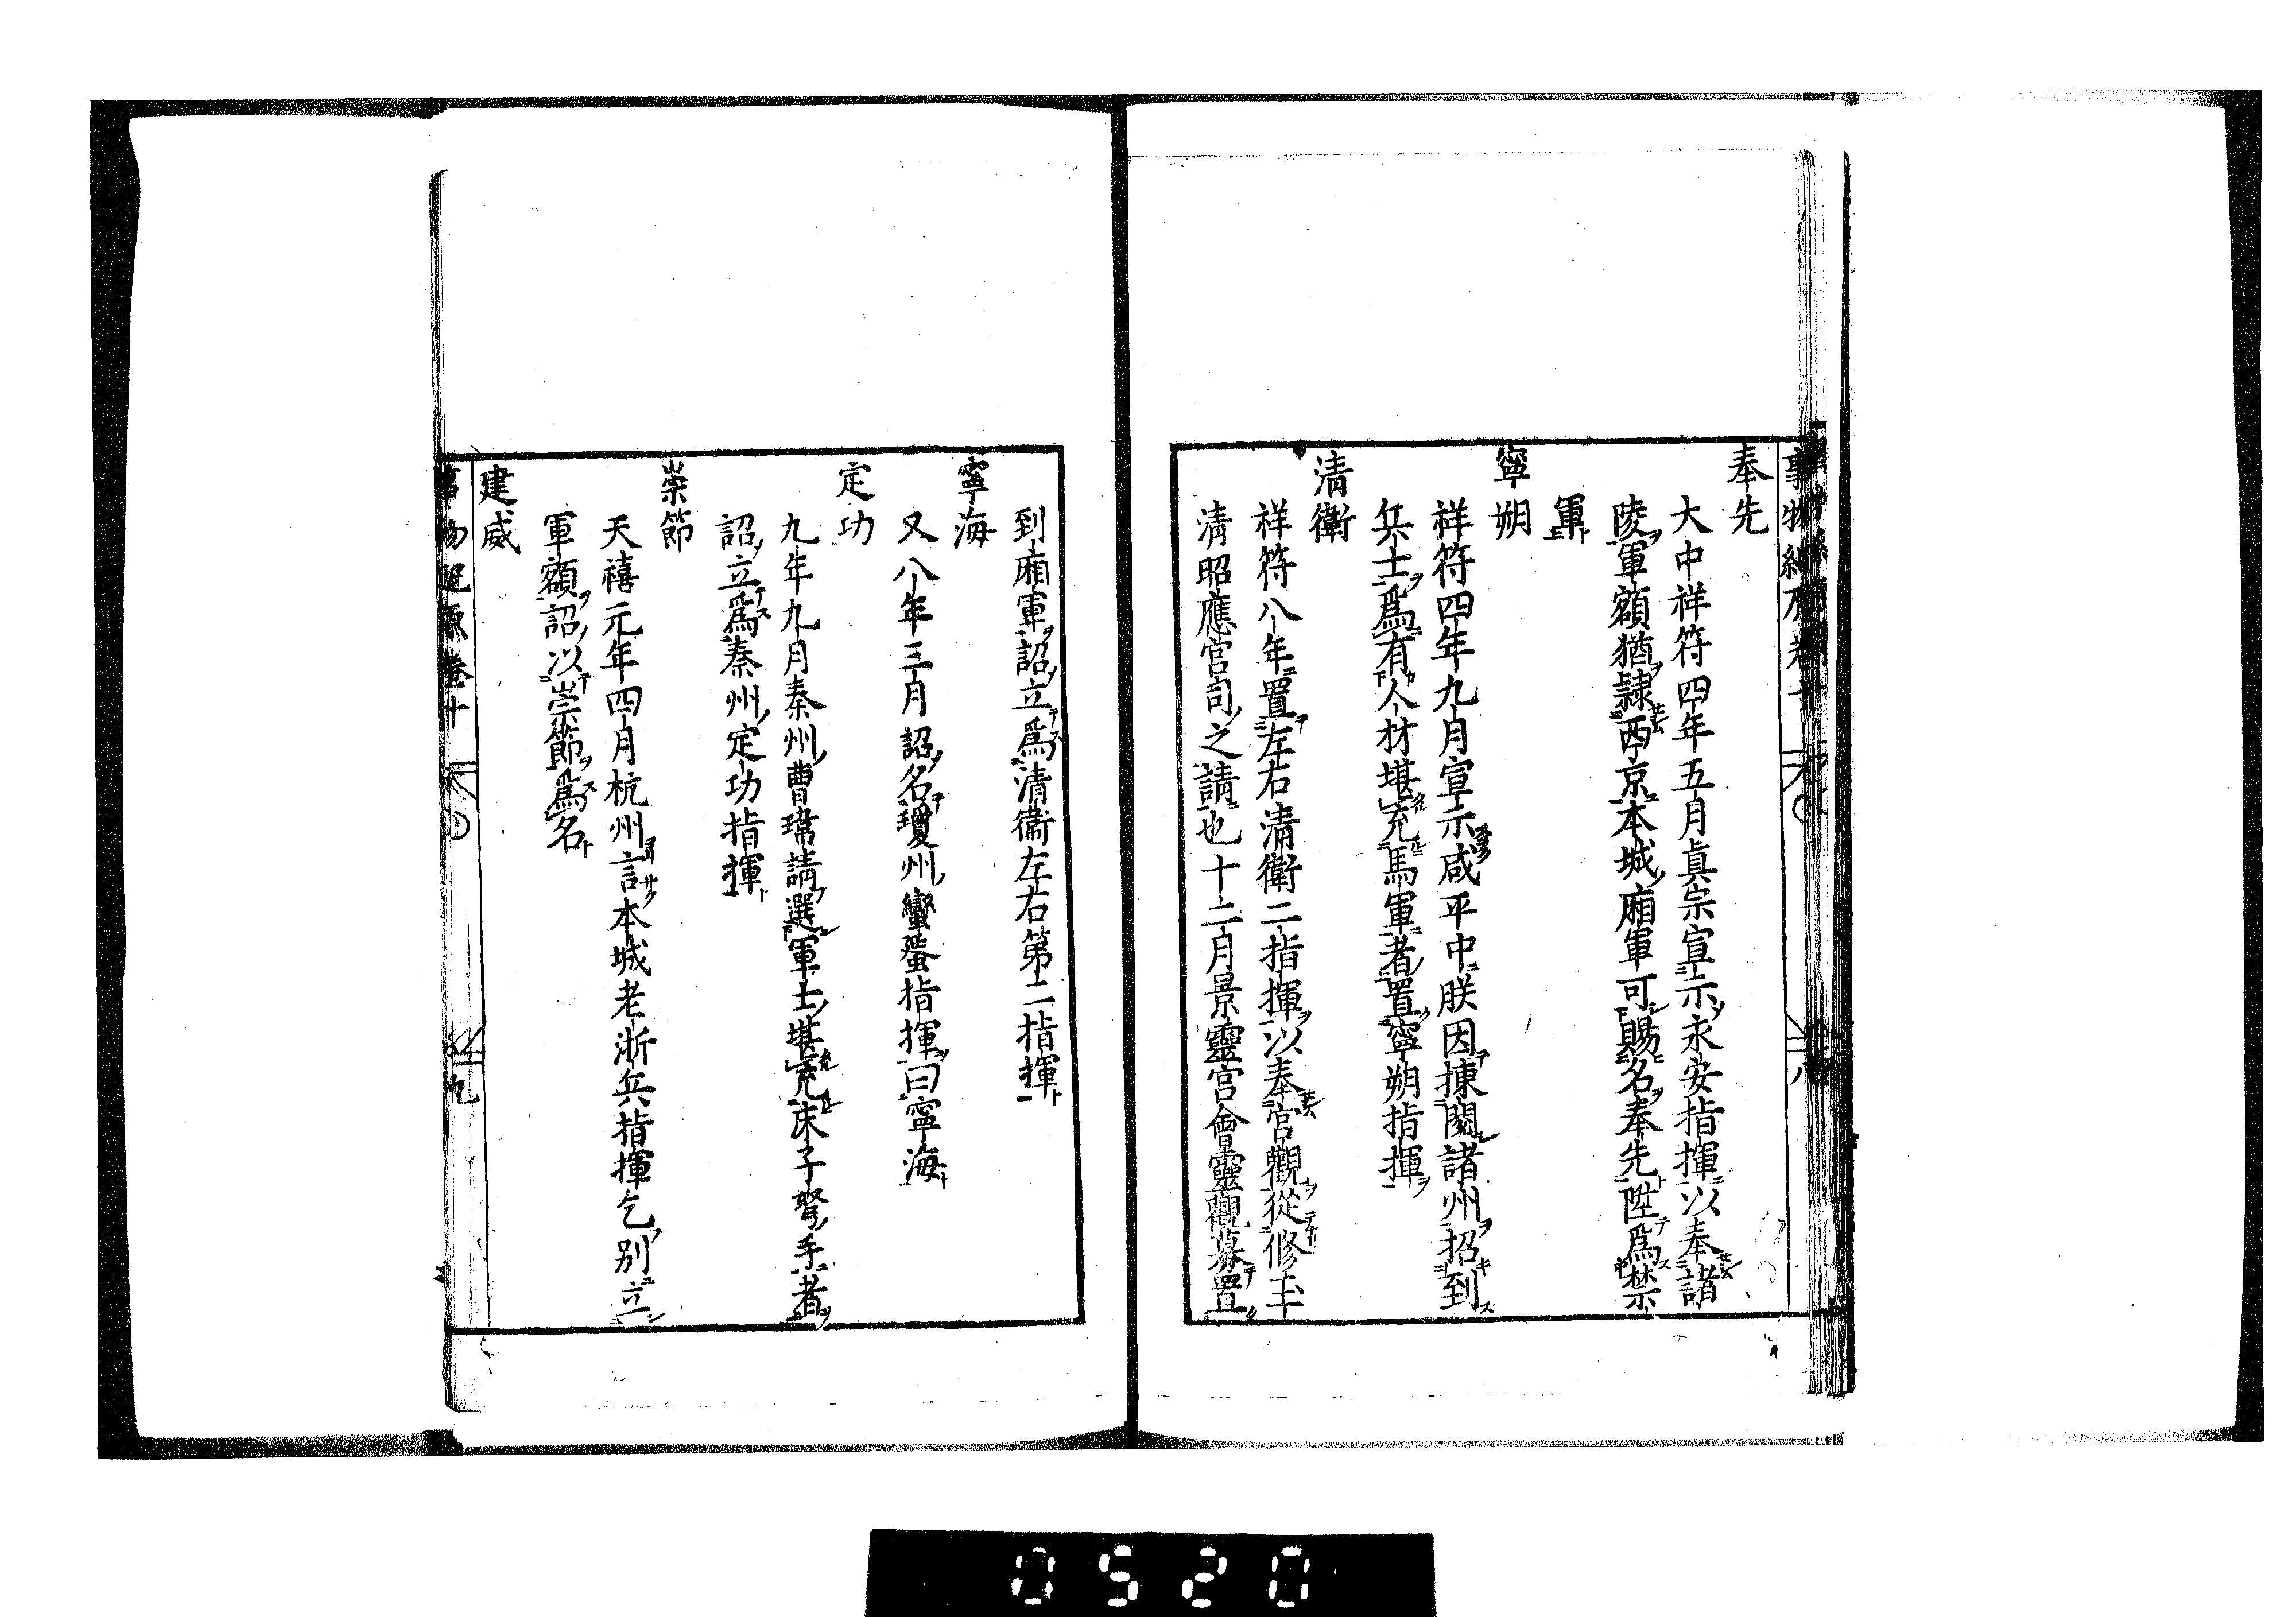 奉先
大中祥符四年五月真宗宣示永安指揮以奉諸
陵軍額猶隷西京本城廂軍可賜名奉先陞爲禁
軍
寧朔
祥符四年九月宣示咸平中朕因揀閱諸州招到
兵士爲有人材堪充馬軍者置寧朔指揮
清衛
祥符八年置左右清衛二指揮以奉宮觀從修玉
清昭應宮司之請也十二月景靈宮會靈觀募置
到廂軍詔立爲清衛左右第二指揮
寧海
又八年三月詔名瓊州蠻蜑指揮曰寧海
定功
九年九月秦州曹瑋請選軍士堪充床子弩手者
詔立爲秦州定功指揮
崇節
天禧元年四月杭州言本城老浙兵指揮乞別立
軍額詔以崇節爲名
建威
事物起原卷十 九
0520